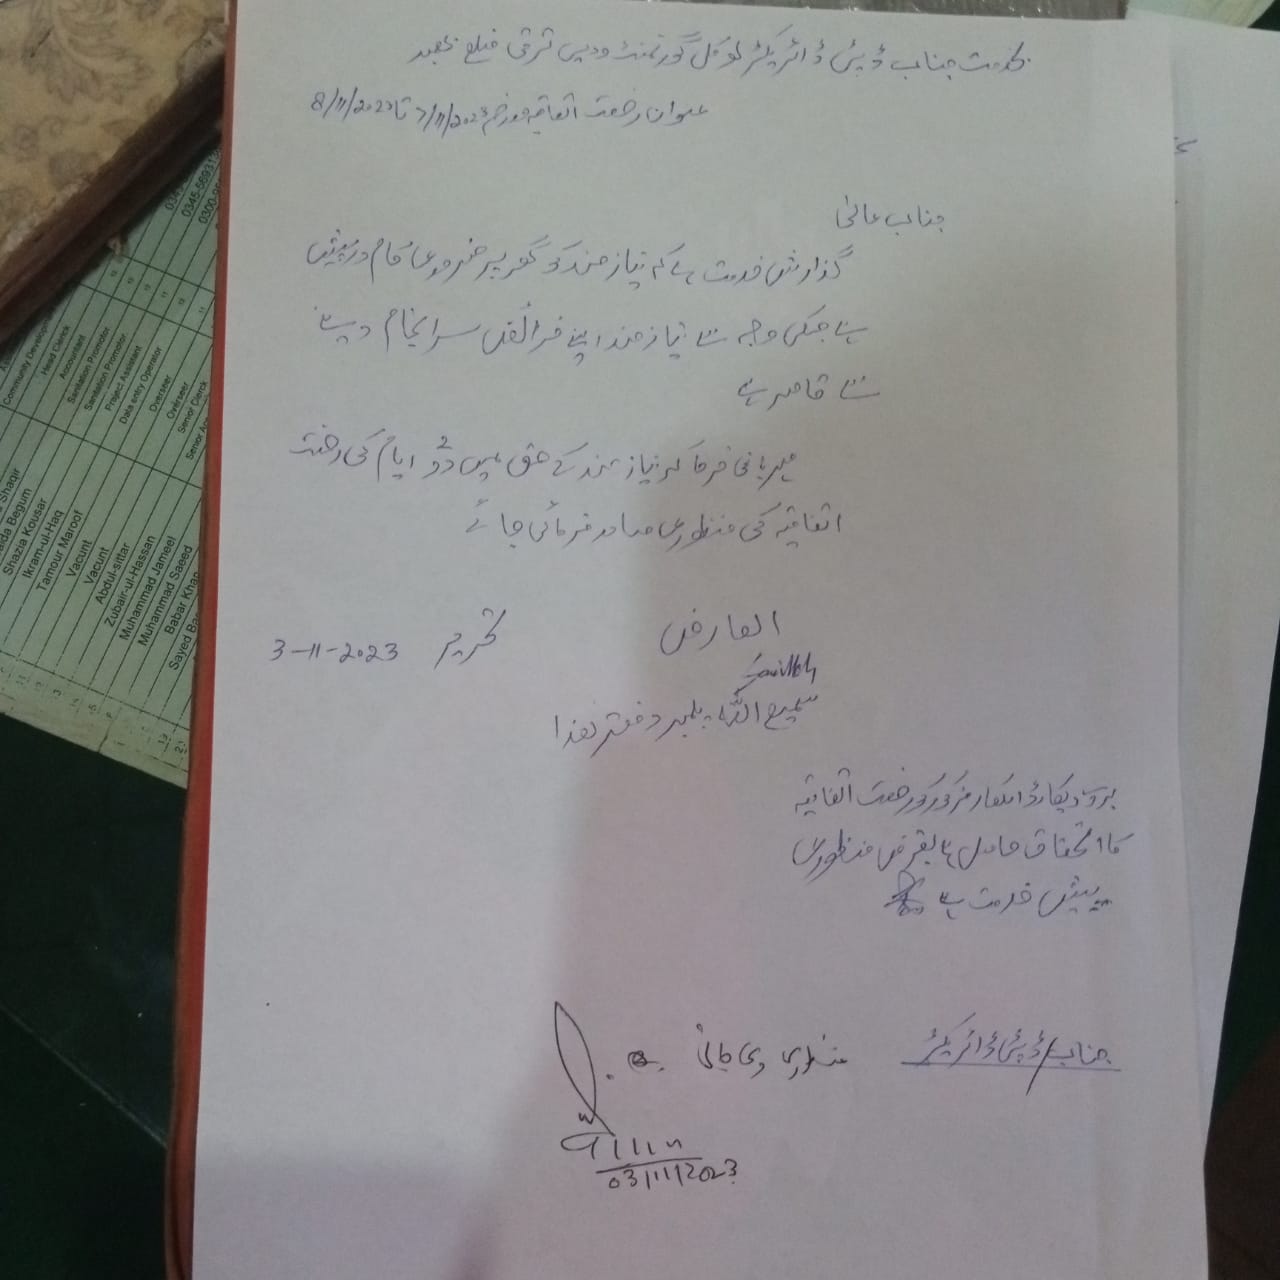 بخدمت جناب ڈپٹی ڈائریکٹر لوکل گورنمنٹ ودیہی ترقی ضلع
عنوان رخصت اتفاقیہ مورخہ 7/11/2023 تا 8/11/2023
جناب عالی
گذارش خدمت ہے کہ نیاز مند کو گھر پر ضروری کام درپیش
ہے جسکی وجہ سے نیاز مند اپنے فرائض سرانجام دینے
سے قاصر ہے
مہربانی فرما کر نیاز مند کے حق میں دو ایام کی رخصت
اتفاقیہ کی منظوری صادر فرمائی جائے
العارض
تحریر 3-11-2023
Samiullah
سمیع اللہ پلمبر دفتر ھذا
بروئے ریکارڈ اہلکار مذکور کو رخصت اتفاقیہ
کا استحقاق حاصل ہے بغرض منظوری
پیش خدمت ہے
جناب ڈپٹی ڈائریکٹر
منظوری دی جاتی ہے
03/11/2023
0345-5693
0300-
Community Develop
Head Clerk
Accountant
Sanitation Promotor
Sanitation Promotor
Project Assistant
Data entry Operator
Overseer
Overseer
Senior Clerck
Senior
Shaqir
Begum
Shazia Kousar
Ikram-ul-Haq
Tamour Maroof
Vacunt
Vacunt
Abdul-sittar
Zubair-ul-Hassan
Muhammad Jameel
Muhammad Saeed
Babar Khan
Sayed